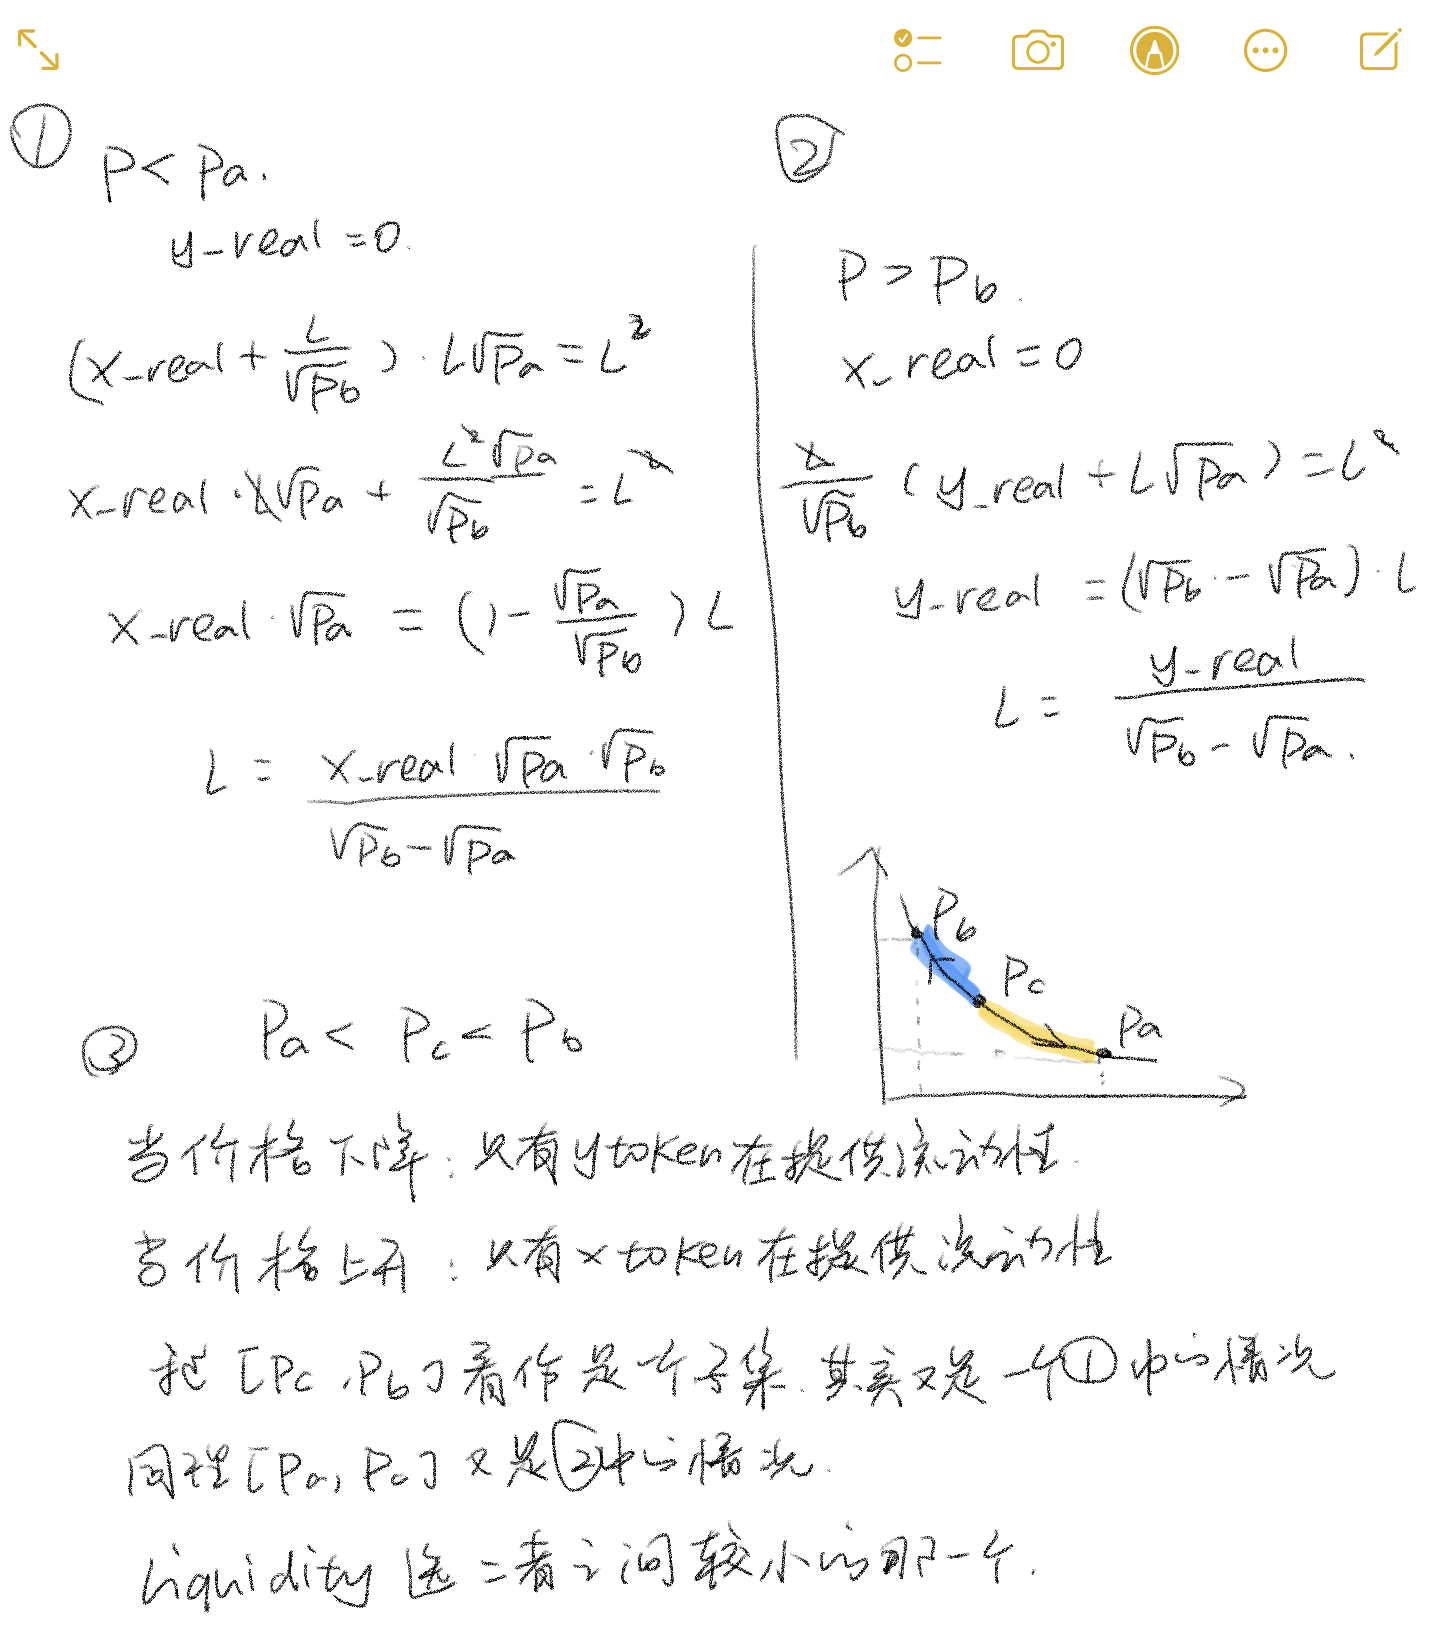 ①
P < Pa.
y_real = 0.
(x_real + L/√Pb) · L√Pa = L²
x_real · L√Pa + L²√Pa/√Pb = L²
x_real · √Pa = (1 - √Pa/√Pb) L
L = x_real · √Pa · √Pb / √Pb - √Pa
②
P > Pb.
x_real = 0
L/√Pb (y_real + L√Pa) = L²
y_real = (√Pb - √Pa) · L
L = y_real / √Pb - √Pa.
Pb
Pc
Pa
③ Pa < Pc < Pb
当价格下降: 只有 y token 在提供流动性.
当价格上升: 只有 x token 在提供流动性
把 [Pc, Pb] 看作是一个子集. 其实又是一个①中的情况
同理 [Pa, Pc] 又是②中的情况.
Liquidity 选二者之间较小的那一个.